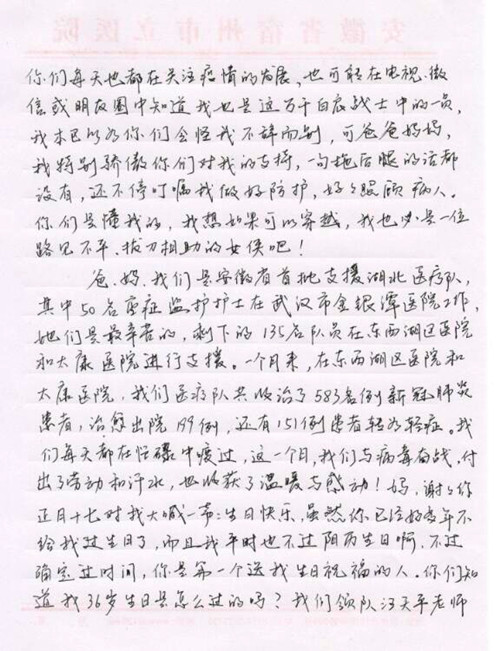 安徽省宿州市立医院
你们每天也都在关注疫情的发展，也可能在电视、微
信或朋友圈中知道我也是这万千白衣战士中的一员，
我本已以为你们会怪我不辞而别，可爸爸妈妈，
我特别骄傲你们对我的支持，一句拖后腿的话都
没有，还不停叮嘱我做好防护，好好照顾病人。
你们是懂我的，我想如果可以穿越，我也必是一位
路见不平、拔刀相助的女侠吧！
爸、妈、我们是安徽省首批支援湖北医疗队，
其中50名重症监护护士在武汉市金银潭医院工作，
她们是最辛苦的，剩下的135名队员在东西湖区医院
和太康医院进行支援。一个月来，在东西湖区医院和
太康医院，我们医疗队共收治了583名例新冠肺炎
患者，治愈出院199例，还有151例患者转为轻症。我
们每天都在忙碌中度过，这一个月，我们与病毒奋战，付
出了劳动和汗水，也收获了温暖与感动！妈，谢谢你
正月十七对我大喊一声：生日快乐，虽然你已说好当年不
给我过生日了，而且我平时也不过阴历生日啊，不过
确实过时间，你是第一个送我生日祝福的人。你们知
道我36岁生日是怎么过的吗？我们领队汪天平老师